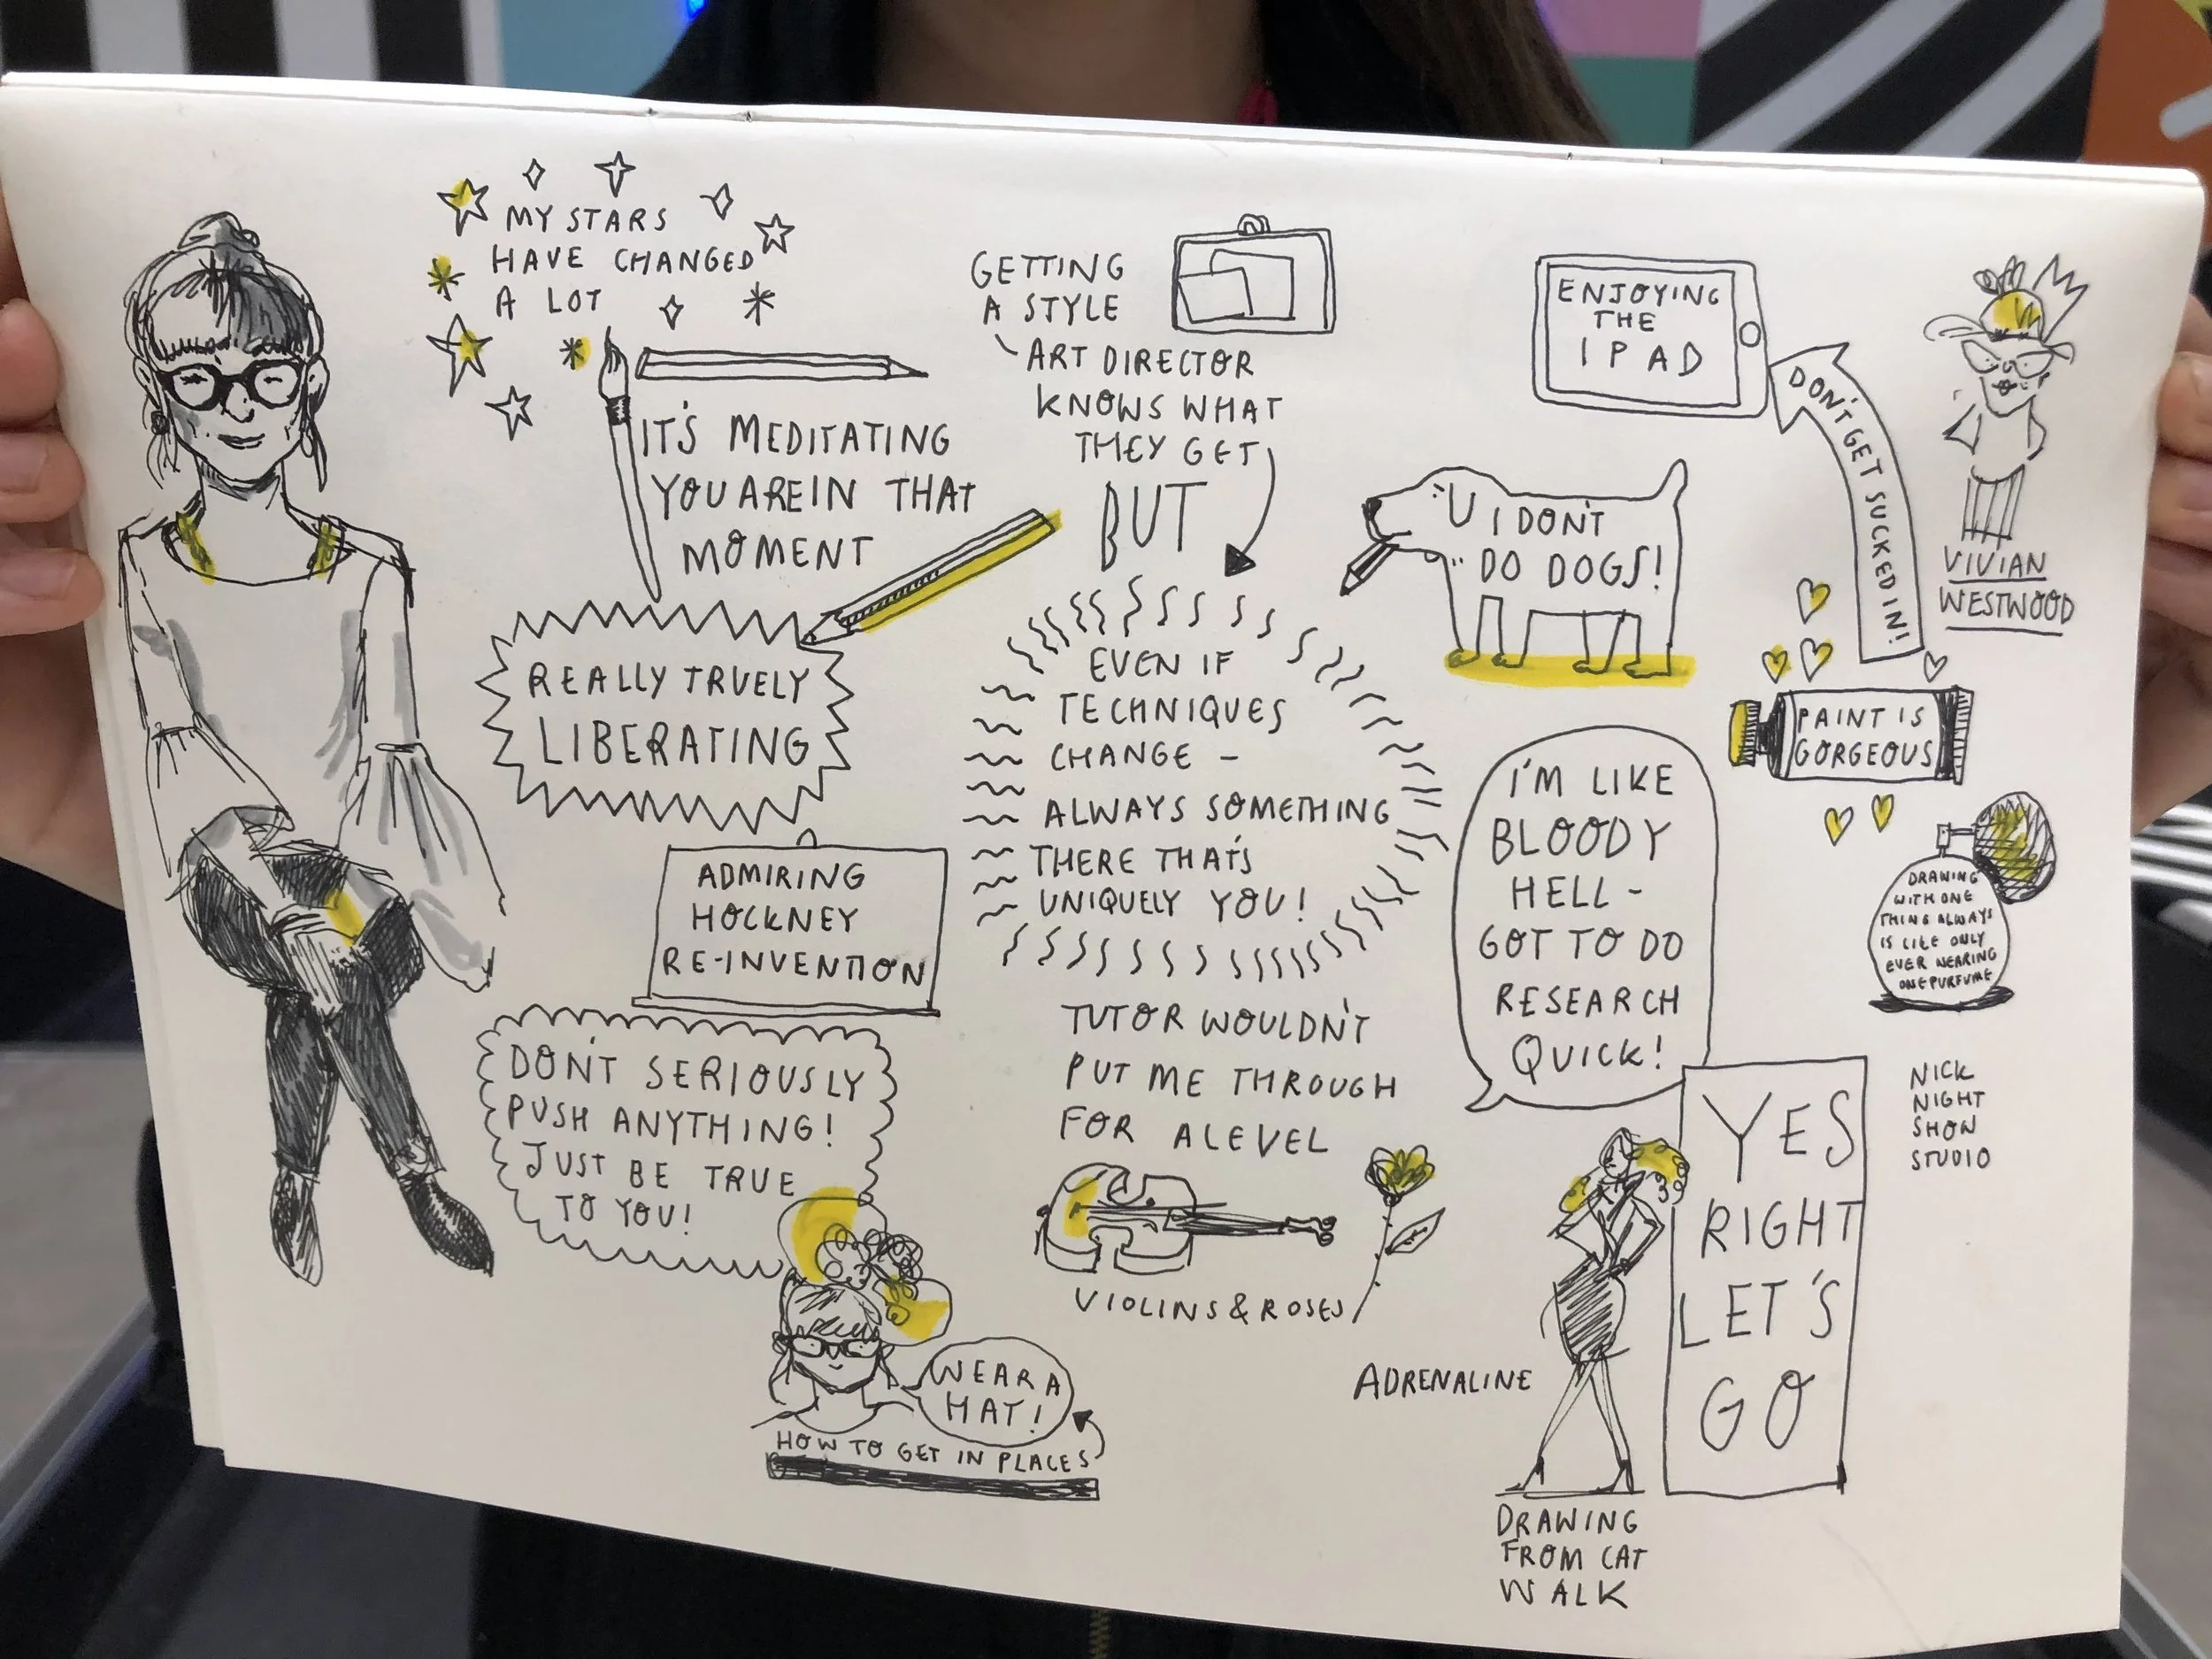 MY STARS
HAVE CHANGED
A LOT
IT'S MEDITATING
YOU ARE IN THAT
MOMENT
REALLY TRUELY
LIBERATING
ADMIRING
HOCKNEY
RE-INVENTION
DON'T SERIOUSLY
PUSH ANYTHING!
JUST BE TRUE
TO YOU!
WEAR A
HAT!
HOW TO GET IN PLACES
GETTING
A STYLE
ART DIRECTOR
KNOWS WHAT
THEY GET
BUT
EVEN IF
TECHNIQUES
CHANGE -
ALWAYS SOMETHING
THERE THAT'S
UNIQUELY YOU!
TUTOR WOULDN'T
PUT ME THROUGH
FOR A LEVEL
VIOLINS & ROSES
ENJOYING
THE
IPAD
DON'T GET SUCKED IN!
VIVIAN
WESTWOOD
I DON'T
DO DOGS!
PAINT IS
GORGEOUS
I'M LIKE
BLOODY
HELL -
GOT TO DO
RESEARCH
QUICK!
DRAWING
WITH ONE
THING ALWAYS
IS LIKE ONLY
EVER WEARING
ONE PURFUME
NICK
NIGHT
SHOW
STUDIO
YES
RIGHT
LET'S
GO
ADRENALINE
DRAWING
FROM CAT
WALK